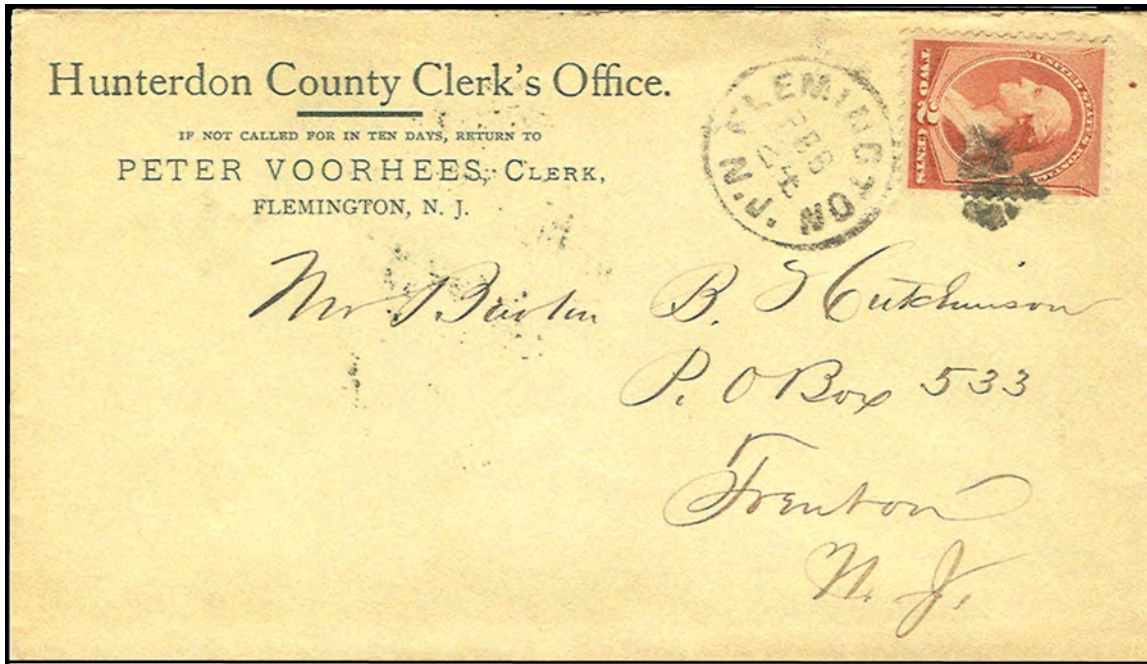 Hunterdon County Clerk's Office.
IF NOT CALLED FOR IN TEN DAYS, RETURN TO
PETER VOORHEES, CLERK,
FLEMINGTON, N. J.
FLEMINGTON N.J.
FEB
24
UNITED STATES POSTAGE
TWO 2 CENTS
Mr Barton B. Hutchinson
P. O Box 533
Trenton
N. J.